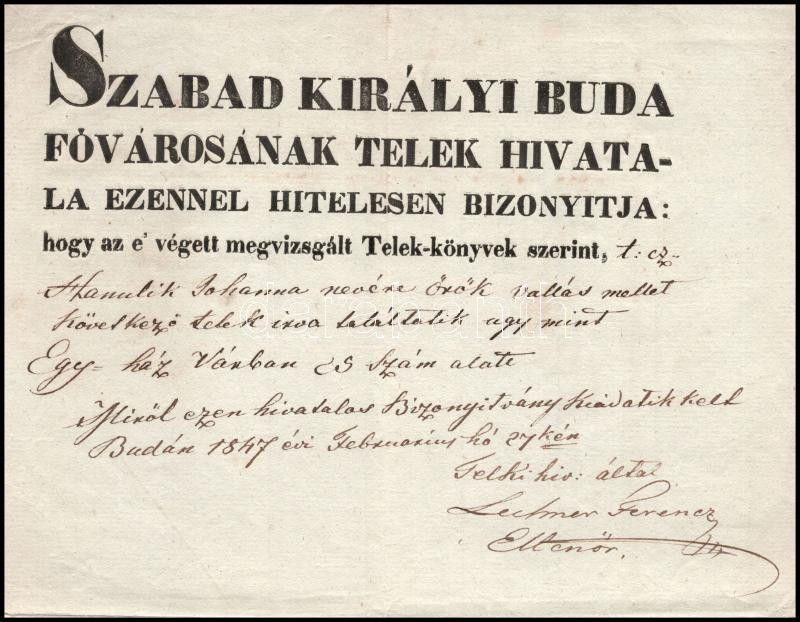 SZABAD KIRÁLYI BUDA
FŐVÁROSÁNAK TELEK HIVATA-
LA EZENNEL HITELESEN BIZONYITJA:
hogy az e' végett megvizsgált Telek-könyvek szerint, t: cz.
Hanulik Johanna nevére örök vallás mellet
következő telek irva találtatik ugy mint
Egy- ház Várban 25 szám alatt
Miröl ezen hivatalos Bizonyitvány kiadatik kelt
Budán 1847 évi Februarius hó 27kén
Telki hiv: által
Lechner Ferencz
Ellenör.